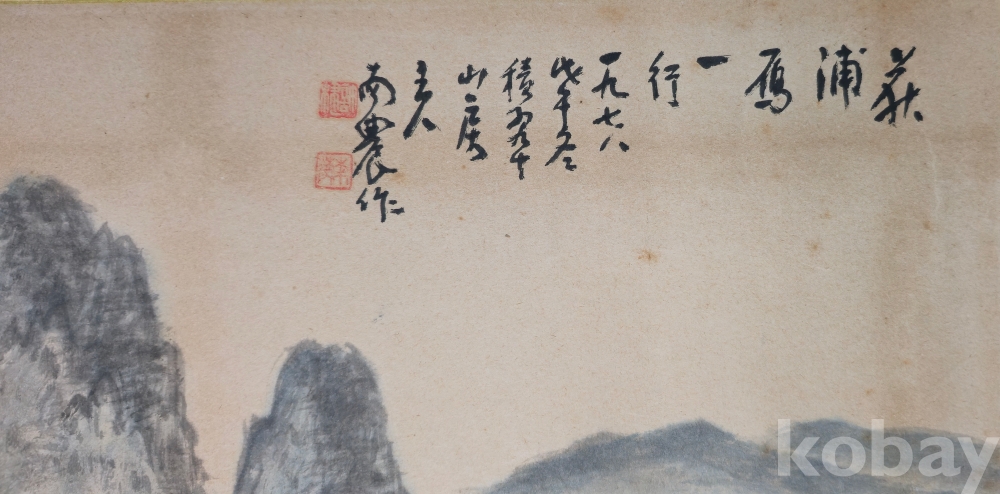 荻
浦
雁
一
行
一九七八
戊午冬
積
山房
主人
南農作
kobay